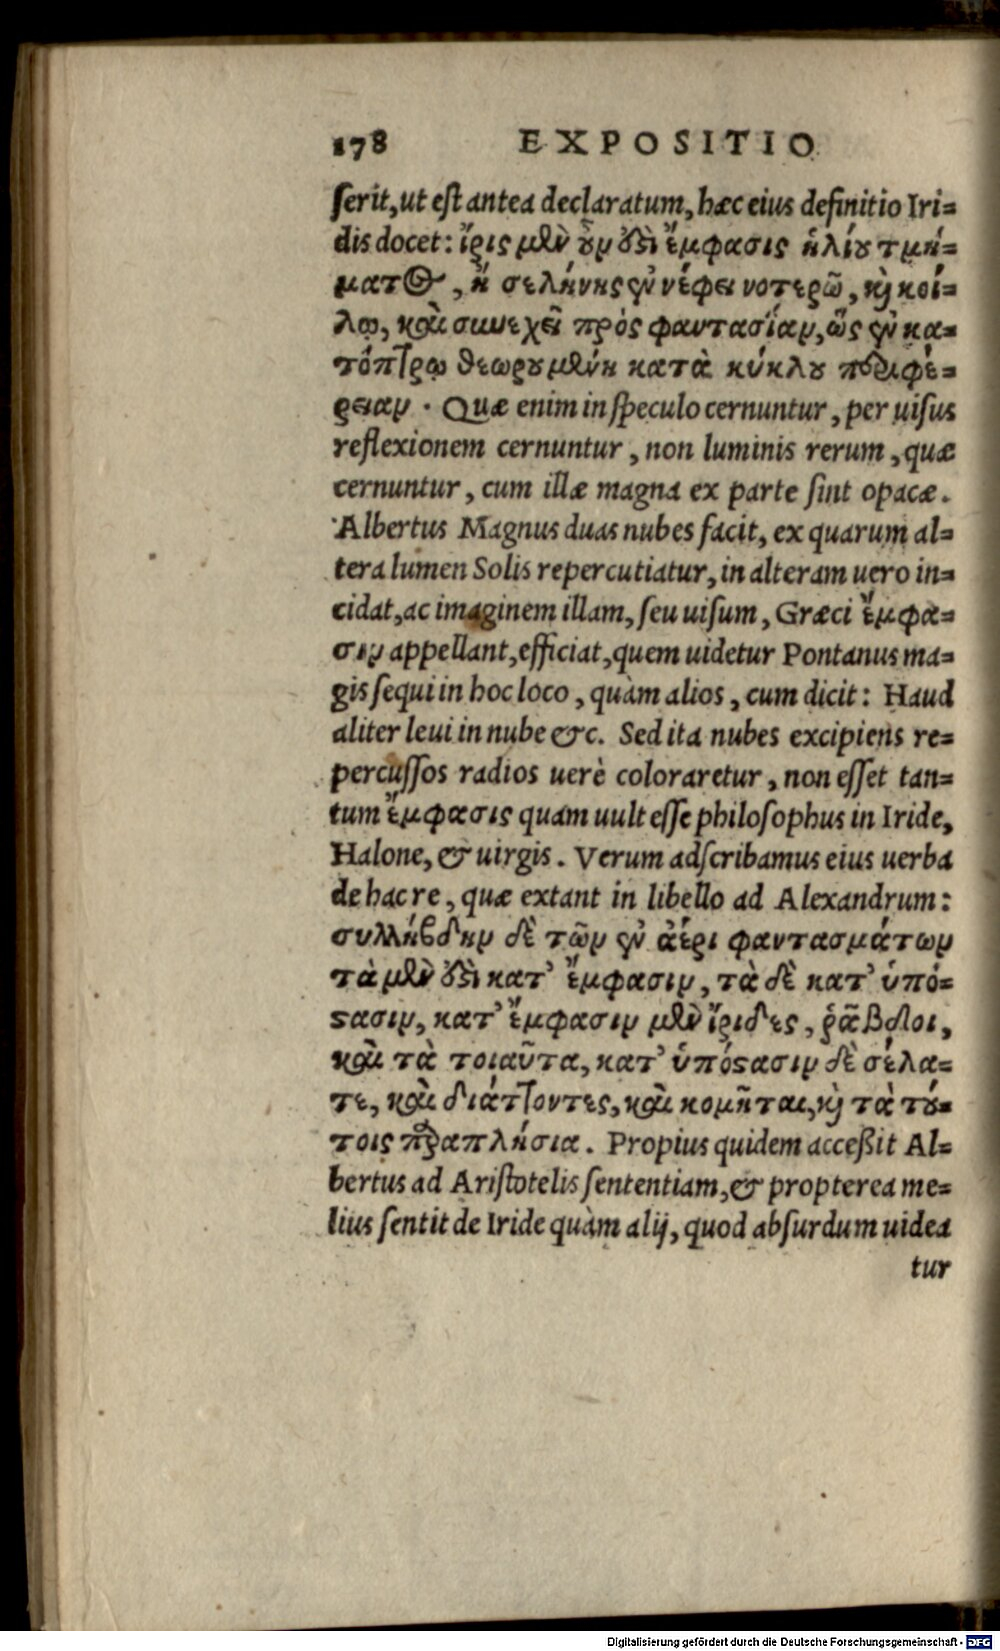 178 EXPOSITIO
serit, ut est antea declaratum, hæc eius definitio Iri=
dis docet: ἴρις μὲν οὖν ὅξὶ ἔμφασις ἡλίου τμή=
ματος, ἢ σελήνης ἐν νέφει νοτερῶ, καὶ κοί=
λῳ, καὶ συνεχεῖ πρὸς φαντασίαν, ὡς ἐν κα=
τόπτρῳ θεωρουμένη κατὰ κύκλου περιφέ=
ρειαν. Quæ enim in speculo cernuntur, per uisus
reflexionem cernuntur, non luminis rerum, quæ
cernuntur, cum illæ magna ex parte sint opacæ.
Albertus Magnus duas nubes facit, ex quarum al=
tera lumen Solis repercutiatur, in alteram uero in=
cidat, ac imaginem illam, seu uisum, Græci ἔμφα=
σιν appellant, efficiat, quem uidetur Pontanus ma=
gis sequi in hoc loco, quàm alios, cum dicit: Haud
aliter leui in nube &c. Sed ita nubes excipiens re=
percussos radios uerè coloraretur, non esset tan=
tum ἔμφασις quam uult esse philosophus in Iride,
Halone, & uirgis. Verum adscribamus eius uerba
de hac re, quæ extant in libello ad Alexandrum:
συλλήβδην δὲ τῶν ἐν ἀέρι φαντασμάτων
τὰ μὲν ὅξὶ κατ' ἔμφασιν, τὰ δὲ κατ' ὑπό=
ςασιν, κατ' ἔμφασιν μὲν ἴριδες, ῥᾶβδοι,
καὶ τὰ τοιαῦτα, κατ' ὑπόςασιν δὲ σέλα=
τε, καὶ διάττοντες, καὶ κομῆται, καὶ τὰ τού=
τοις παραπλήσια. Propius quidem acceßit Al=
bertus ad Aristotelis sententiam, & propterea me=
lius sentit de Iride quàm alij, quod absurdum uidea
tur
Digitalisierung gefördert durch die Deutsche Forschungsgemeinschaft - DFG